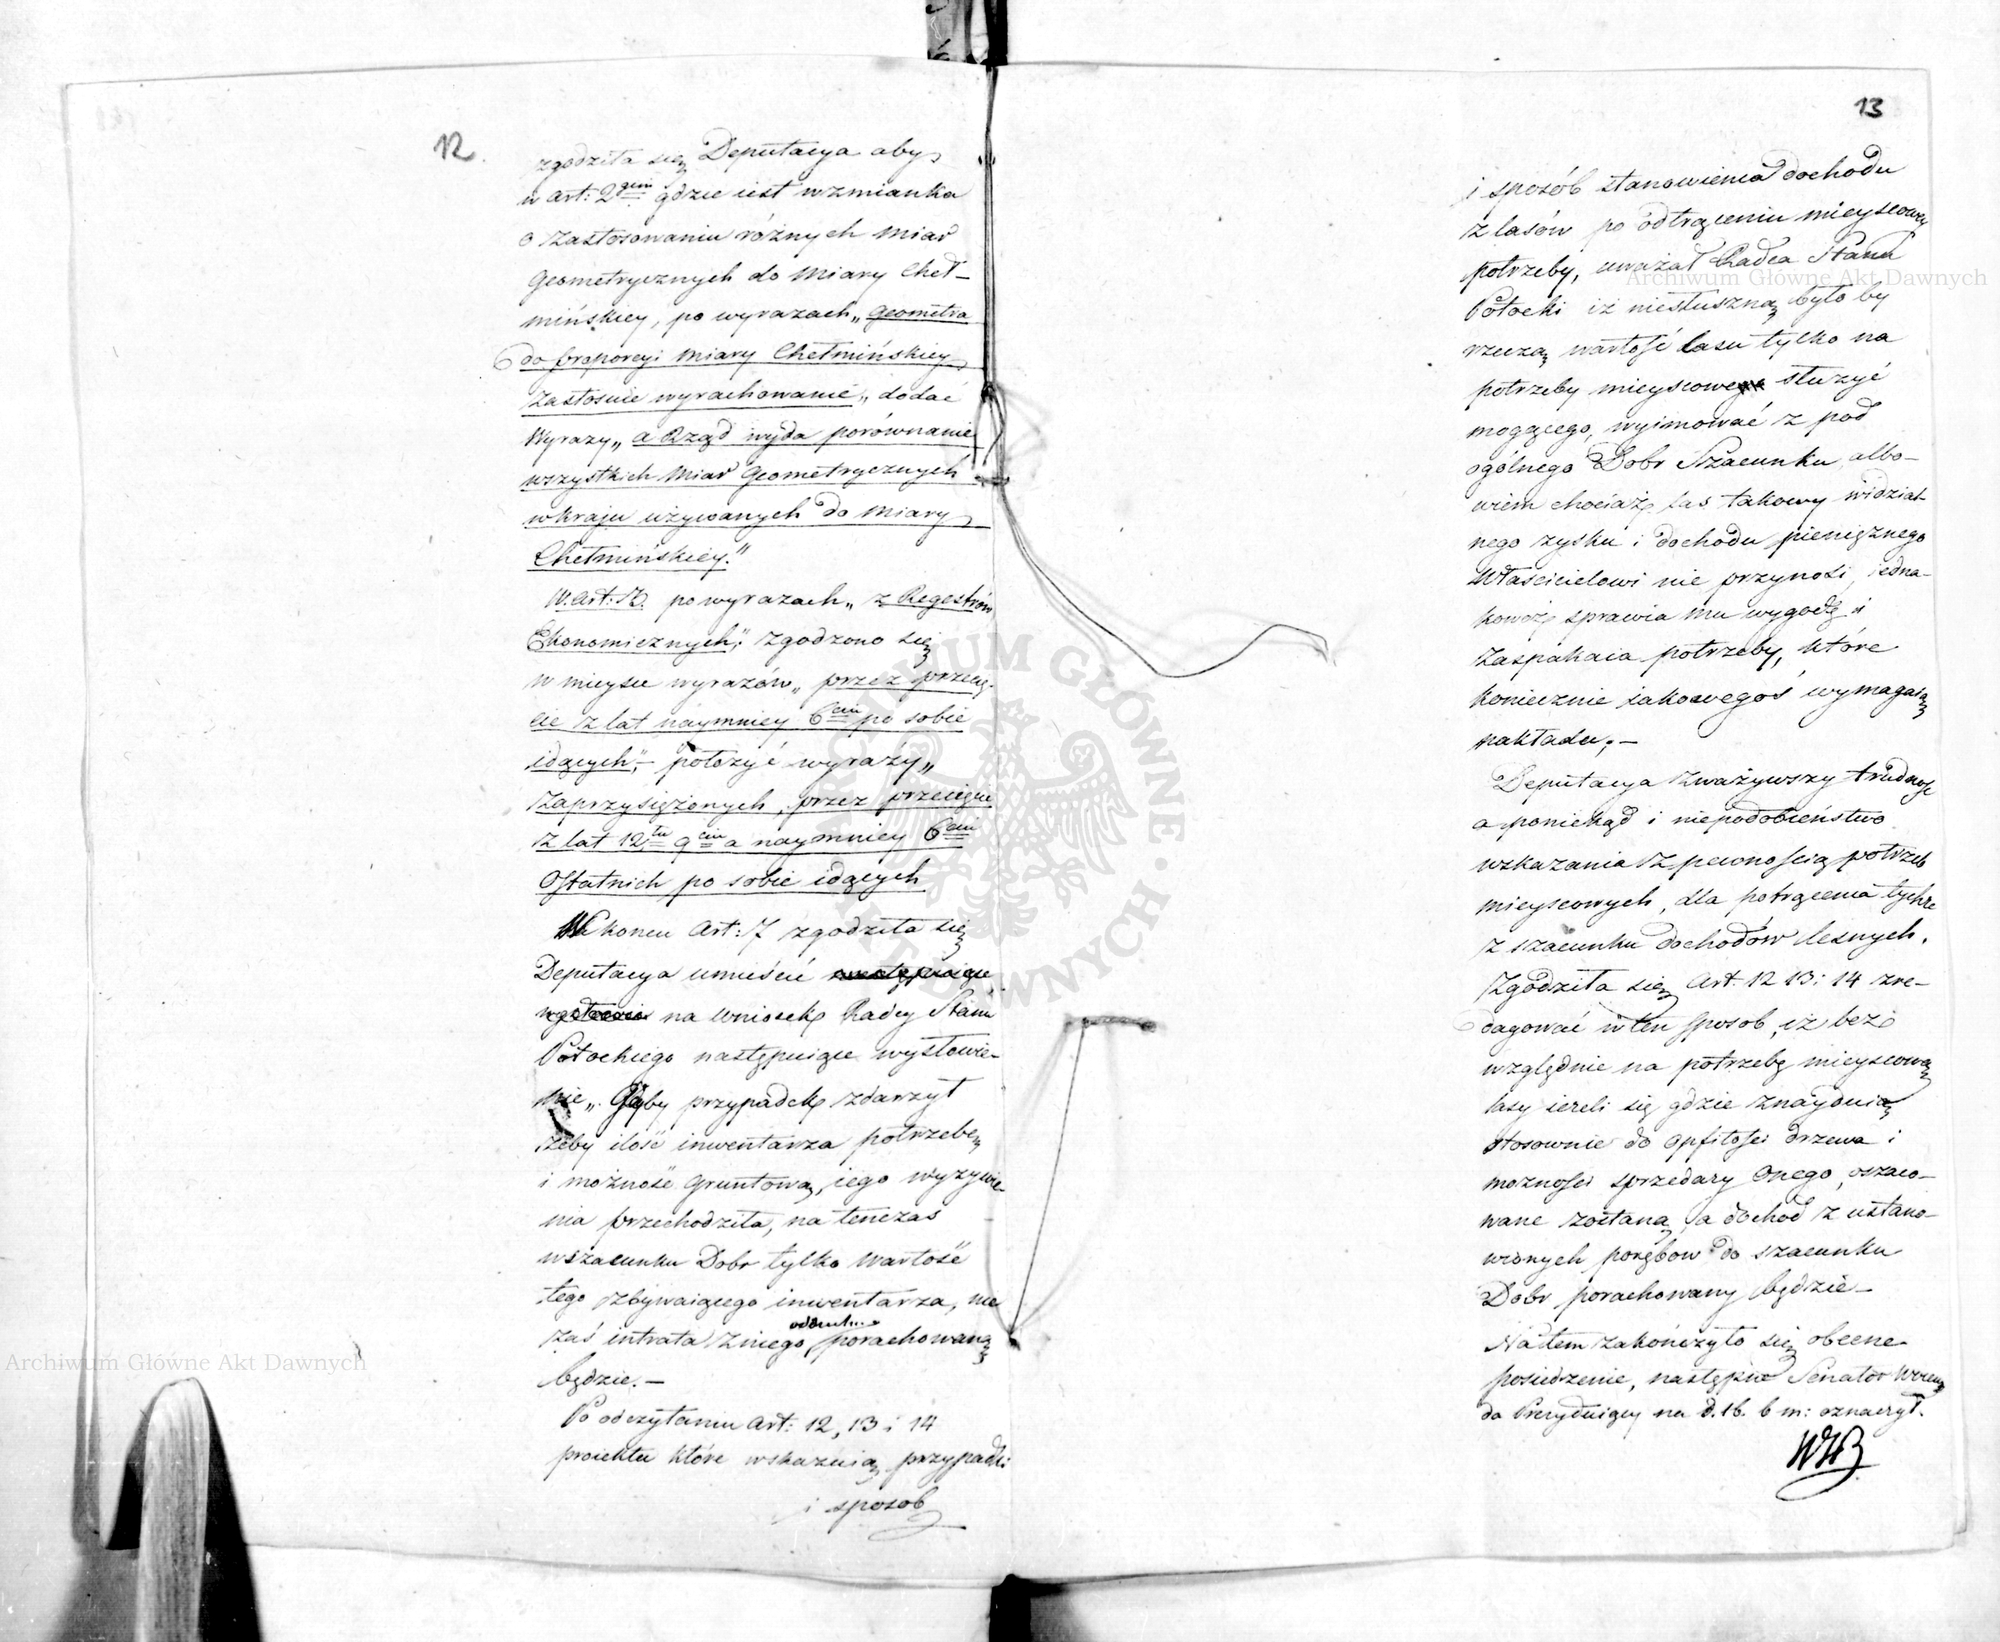 12.
zgodziła się Deputacya aby
w Art: 2gim gdzie iest wzmianka
o zastosowaniu różnych Miar
Geometrycznych do Miary Cheł-
mińskiey, po wyrazach „Geometra
do proporcyi Miary Chełmińskiey
zastosuie wyrachowanie„ dodać
wyrazy „ a Rząd wyda porównanie
wszystkich Miar Geometrycznych
w kraju używanych do Miary
Chełmińskiey."
W Art: po wyrazach „ z Regestrów
Ekonomicznych," zgodzono się
w mieysce wyrazów „ przez przecię-
cie z lat naymniey 6ciu po sobie
idących," – położyć wyrazy „
zaprzysiężonych, przez przecięcie
z lat 12tu 9ciu a naymniey 6ciu
Ostatnich po sobie idących
W końcu Art: 7 zgodziła się
Deputacya umieścić następuiące
na wniosek Radcy Stanu
Potockiego następuiące wysłowie-
nie „ Gdyby przypadek zdarzył
żeby ilość inwentarza potrzebę
i możność Gruntową, iego wyżywie-
nia przechodziła, na tenczas
w szacunku Dobr tylko wartość
tego zbywaiącego inwentarza, nie
zaś intrata z niego porachowaną
będzie. –
Po odczytaniu Art: 12, 13 i 14
proiektu które wskazuią przypadki
i sposob
13
i sposób stanowienia dochodu
z lasów po odtrąceniu mieyscowey
potrzeby, uważał Radca Stanu
Potocki iż niesłuszną byłoby
rzeczą wartość lasu tylko na
potrzeby mieyscowe służyć
mogącego, wyimować z pod
ogólnego Dobr Szacunku, albo-
wiem chociaż las takowy widzial-
nego zysku i dochodu pieniężnego
Właścicielowi nie przynosi, iedna-
kowoż sprawia mu wygodę i
zaspakaia potrzeby, które
koniecznie iakowegoś wymagaią
nakładu. –
Deputacya zważywszy trudność
a poniekąd i niepodobieństwo
wskazania z pewnością potrzeb
mieyscowych, dla potrącenia tychże
z szacunku dochodów lesnych,
Zgodziła się Art: 12 13 i 14 zre-
dagować w ten sposob, iż bez
względnie na potrzebę mieyscową
lasy iezeli się gdzie znayduią
stosownie do opfitości drzewa i
mozności sprzedazy Onego, oszaco-
wane zostaną, a dochod z ustano-
wionych porębow do szacunku
Dobr porachowany będzie –
Na tem zakończyło się obecne
posiedzenie, następne Senator Woiewo-
da Prezyduiący na d. 16. b m: oznaczył.
Archiwum Główne Akt Dawnych
Archiwum Główne Akt Dawnych
ARCHIWUM GŁÓWNE AKT DAWNYCH